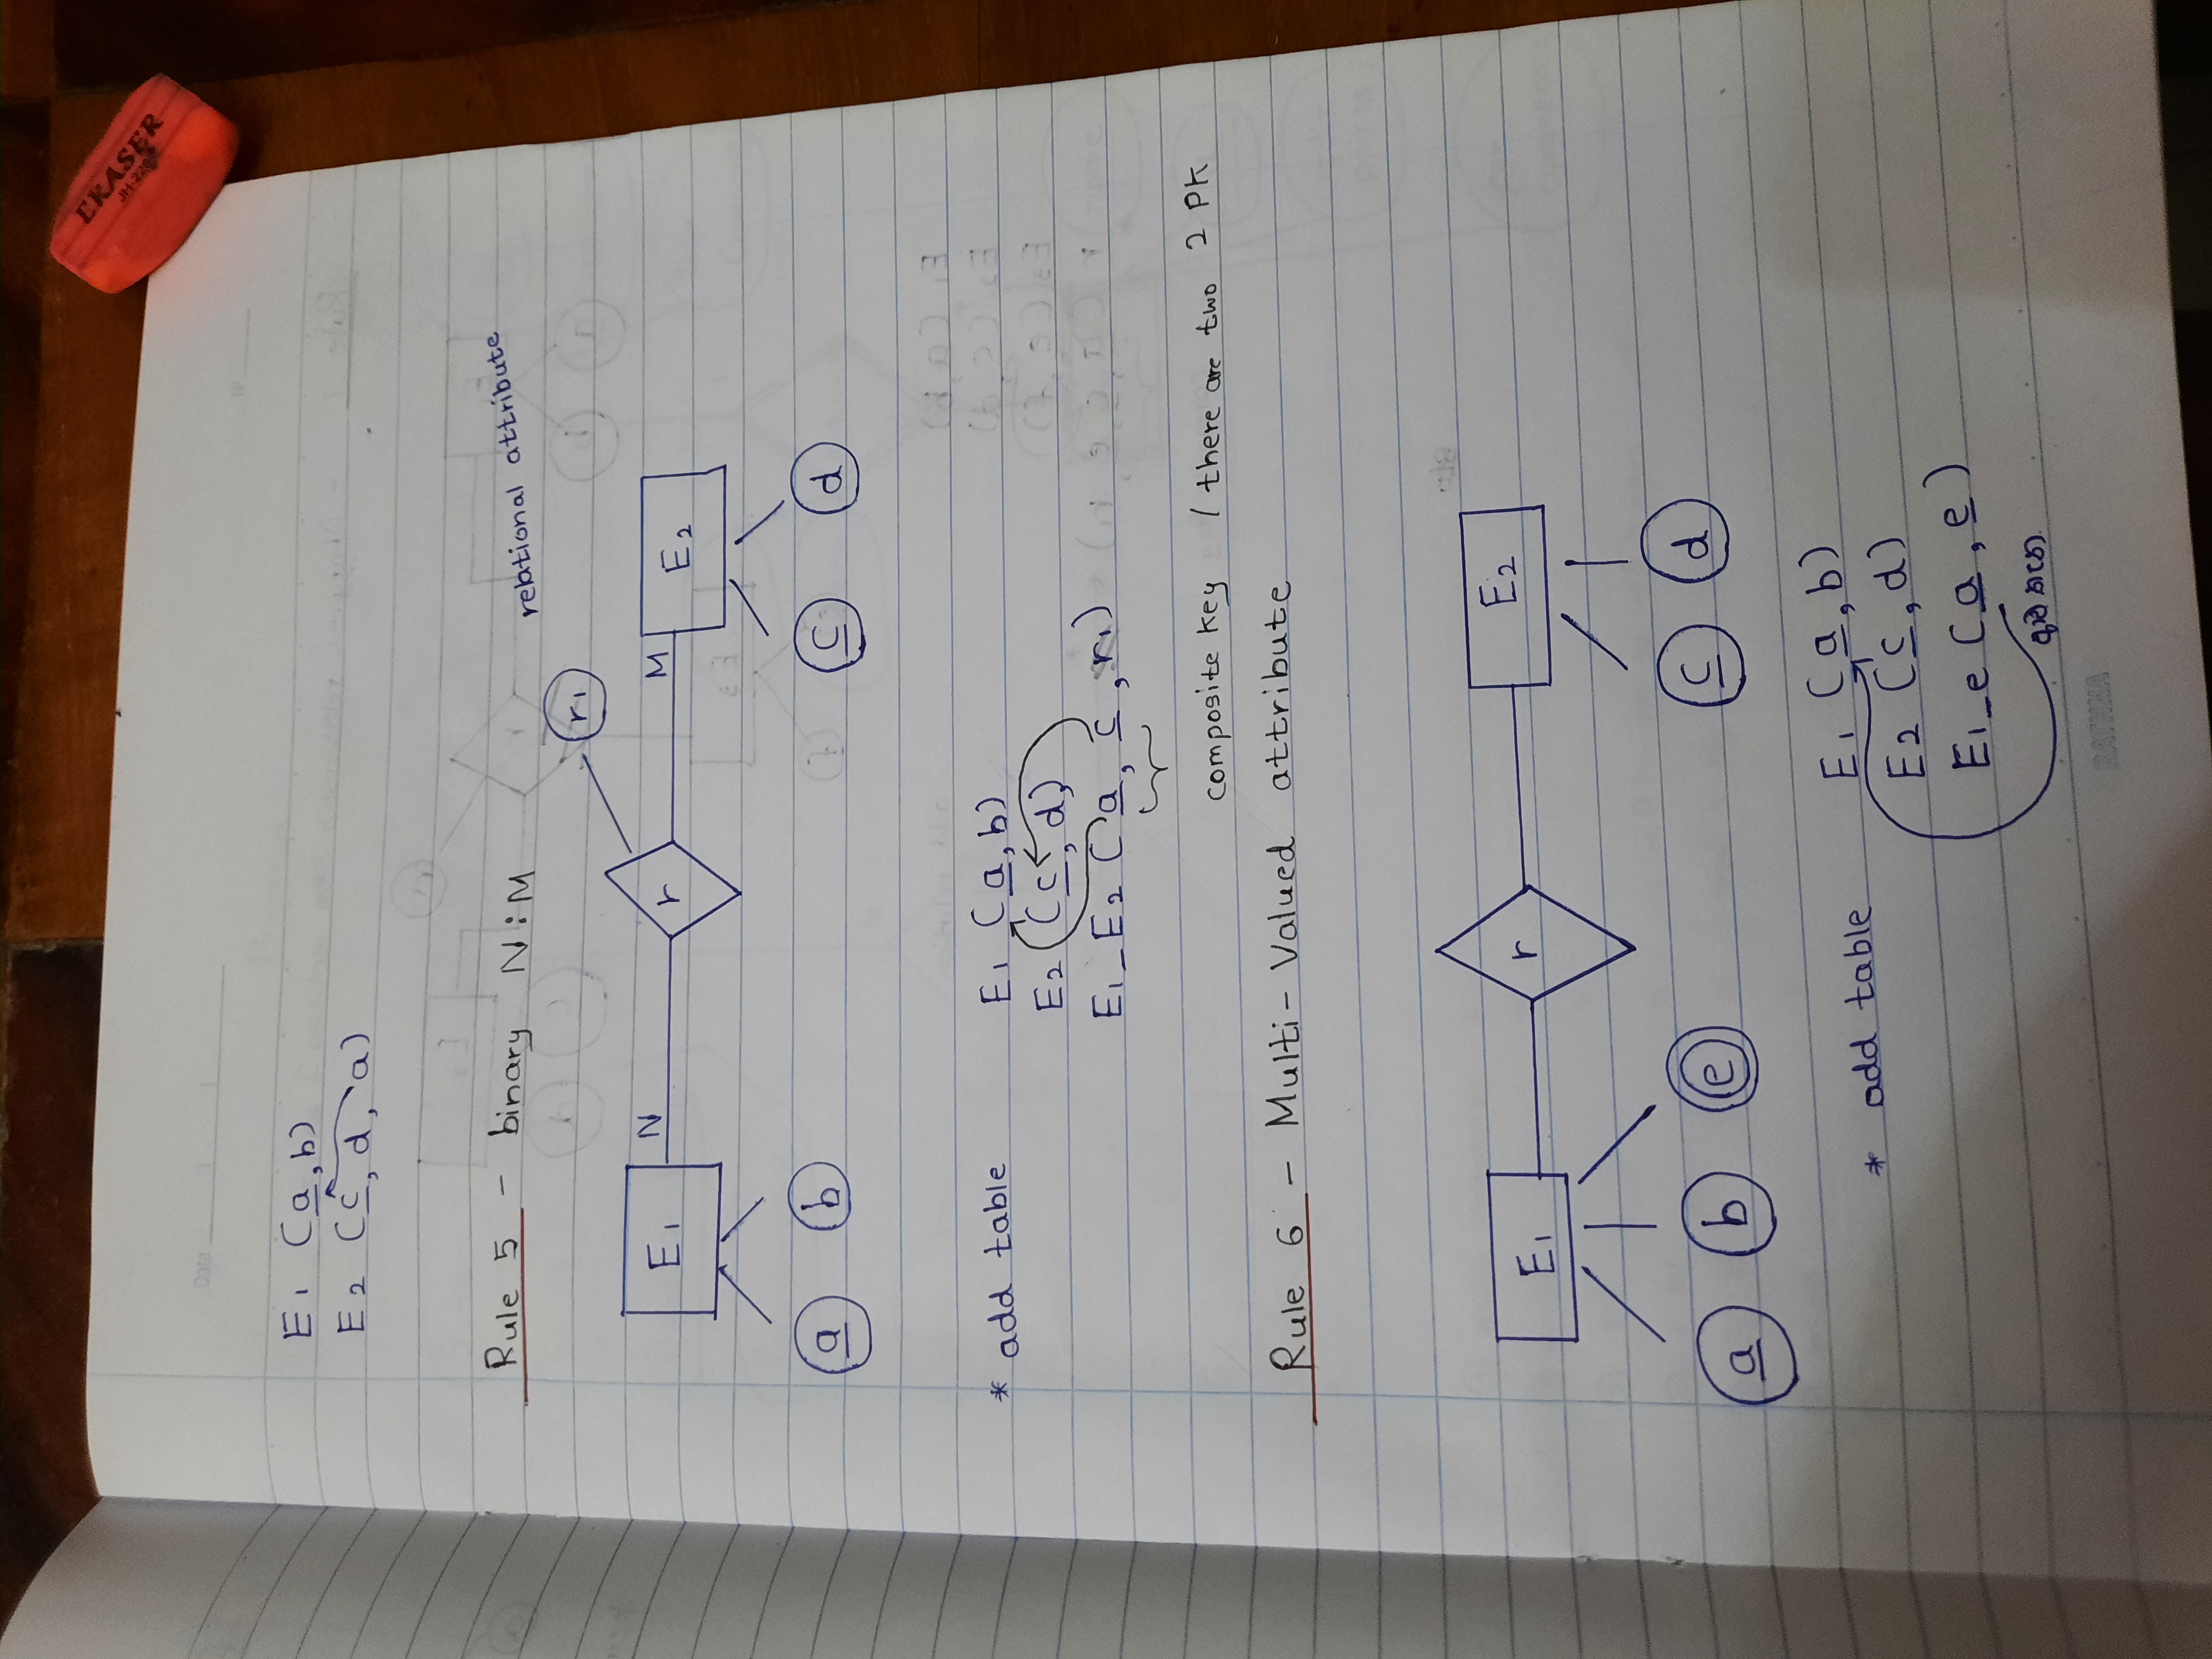 ERASER
Date
E1 (a, b)
E2 (c, d, a)
Rule 5 - binary N:M
relational attribute
r1
E1 N r M E2
a b c d
* add table E1 (a, b)
E2 (c, d)
E1_E2 (a, c, r1)
composite key / there are two 2 PK
Rule 6 - Multi-Valued attribute
E1 r E2
a b e c d
* add table E1 (a, b)
E2 (c, d)
E1_e (a, e)
RATHNA